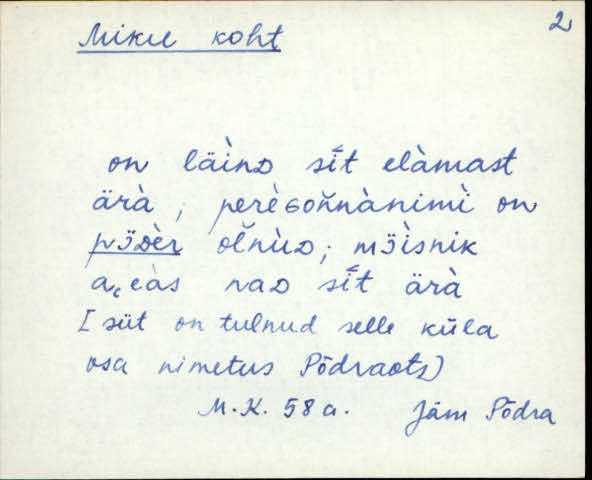 2
Miku koht
on läìnᴅ sī̆t elàmast
ärà ; perèɢoňnànimì on
pɜ̈ᴅèr oľnùᴅ ; mɜ̈ìsnik
naᴅ sī̆t ärà
[siit on tulnud selle küla
osa nimetus Põdraots]
M.K. 58 a. Jäm Põdra